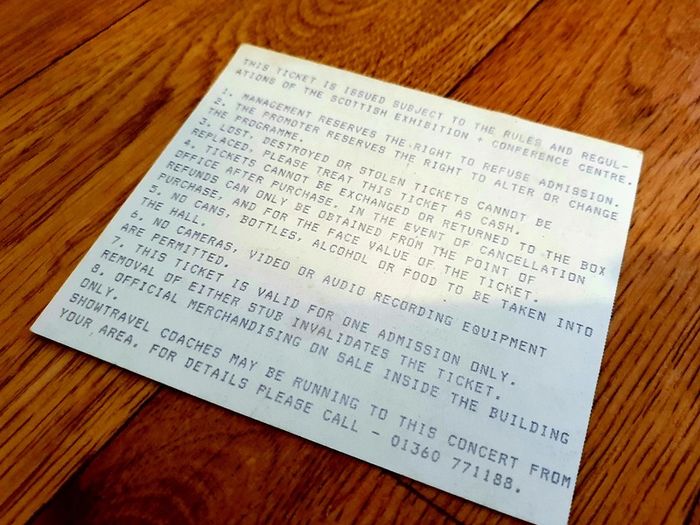 THIS TICKET IS ISSUED SUBJECT TO THE RULES AND REGUL-
ATIONS OF THE SCOTTISH EXHIBITION + CONFERENCE CENTRE.
1. MANAGEMENT RESERVES THE RIGHT TO REFUSE ADMISSION.
2. THE PROMOTER RESERVES THE RIGHT TO ALTER OR CHANGE
THE PROGRAMME.
3. LOST, DESTROYED OR STOLEN TICKETS CANNOT BE
REPLACED, PLEASE TREAT THIS TICKET AS CASH.
4. TICKETS CANNOT BE EXCHANGED OR RETURNED TO THE BOX
OFFICE AFTER PURCHASE, IN THE EVENT OF CANCELLATION
REFUNDS CAN ONLY BE OBTAINED FROM THE POINT OF
PURCHASE, AND FOR THE FACE VALUE OF THE TICKET.
5. NO CANS, BOTTLES, ALCOHOL OR FOOD TO BE TAKEN INTO
THE HALL.
6. NO CAMERAS, VIDEO OR AUDIO RECORDING EQUIPMENT
ARE PERMITTED.
7. THIS TICKET IS VALID FOR ONE ADMISSION ONLY.
REMOVAL OF EITHER STUB INVALIDATES THE TICKET.
8. OFFICIAL MERCHANDISING ON SALE INSIDE THE BUILDING
ONLY.
SHOWTRAVEL COACHES MAY BE RUNNING TO THIS CONCERT FROM
YOUR AREA. FOR DETAILS PLEASE CALL - 01360 771188.